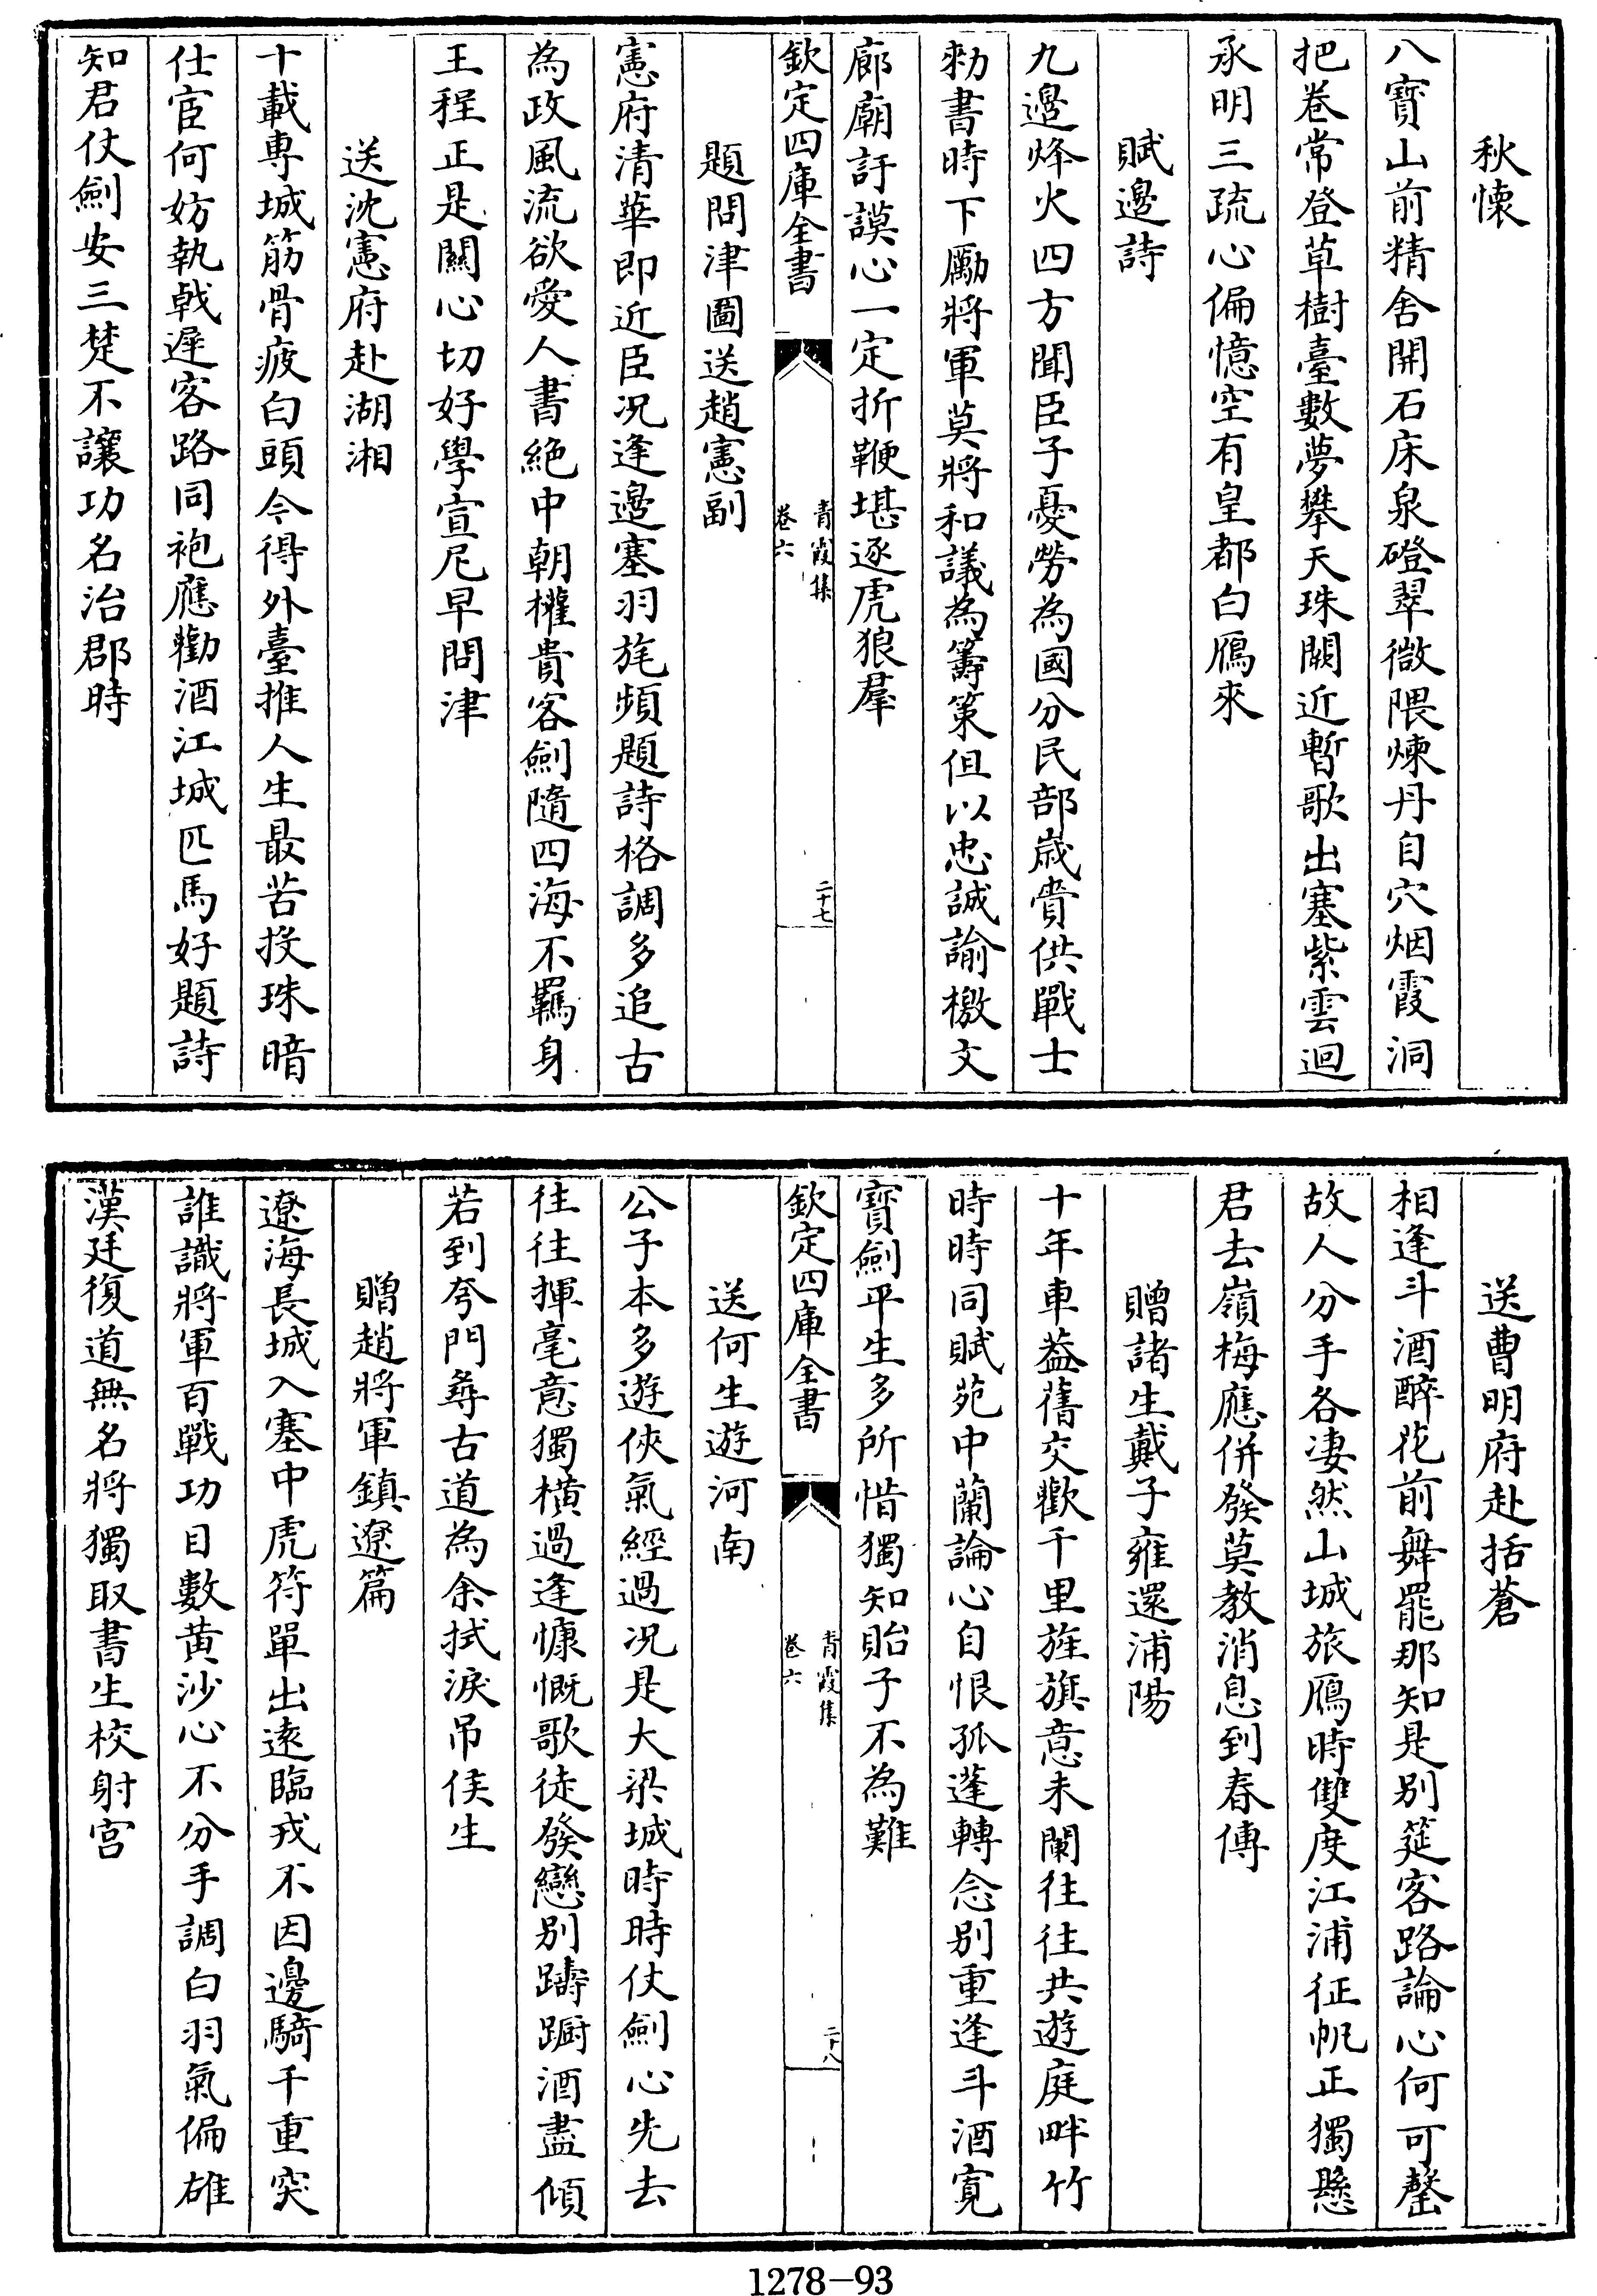 秋懷
八寶山前精舍開石床泉磴翠微隈煉丹自穴烟霞洞
把卷常登草樹臺數夢攀天珠闕近暫歌出塞紫雲迴
承明三疏心偏憶空有皇都白鴈來
賦邊詩
九邊烽火四方聞臣子憂勞為國分民部歲賞供戰士
勑書時下勵將軍莫將和議為籌策但以忠誠諭檄文
廊廟訏謨心一定折鞭堪逐虎狼羣
欽定四庫全書
青霞集
卷六
二十七
題問津圖送趙憲副
憲府清華即近臣况逢邊塞羽旄頻題詩格調多追古
為政風流欲愛人書絶中朝權貴客劍隨四海不羈身
王程正是關心切好學宣尼早問津
送沈憲府赴湖湘
十載專城筋骨疲白頭今得外臺推人生最苦投珠暗
仕宦何妨執戟遲客路同袍應勸酒江城匹馬好題詩
知君仗劍安三楚不讓功名治郡時
送曹明府赴括蒼
相逢斗酒醉花前舞罷那知是别筵客路論心何可罄
故人分手各凄然山城旅鴈時雙度江浦征帆正獨懸
君去嶺梅應併發莫教消息到春傳
贈諸生戴子雍還浦陽
十年車葢舊交歡千里旌旗意未闌往往共遊庭畔竹
時時同賦苑中蘭論心自恨孤蓬轉念别重逢斗酒寛
寶劍平生多所惜獨知貽子不為難
欽定四庫全書
青霞集
卷六
二十八
送何生遊河南
公子本多遊俠氣經過况是大梁城時時仗劍心先去
往往揮毫意獨横過逢慷慨歌徒發戀别躊蹰酒盡傾
若到夸門尋古道為余拭淚吊侯生
贈趙將軍鎮遼篇
遼海長城入塞中虎符單出遠臨戎不因邊騎千重突
誰識將軍百戰功目數黄沙心不分手調白羽氣偏雄
漢廷復道無名將獨取書生校射宫
1278-93